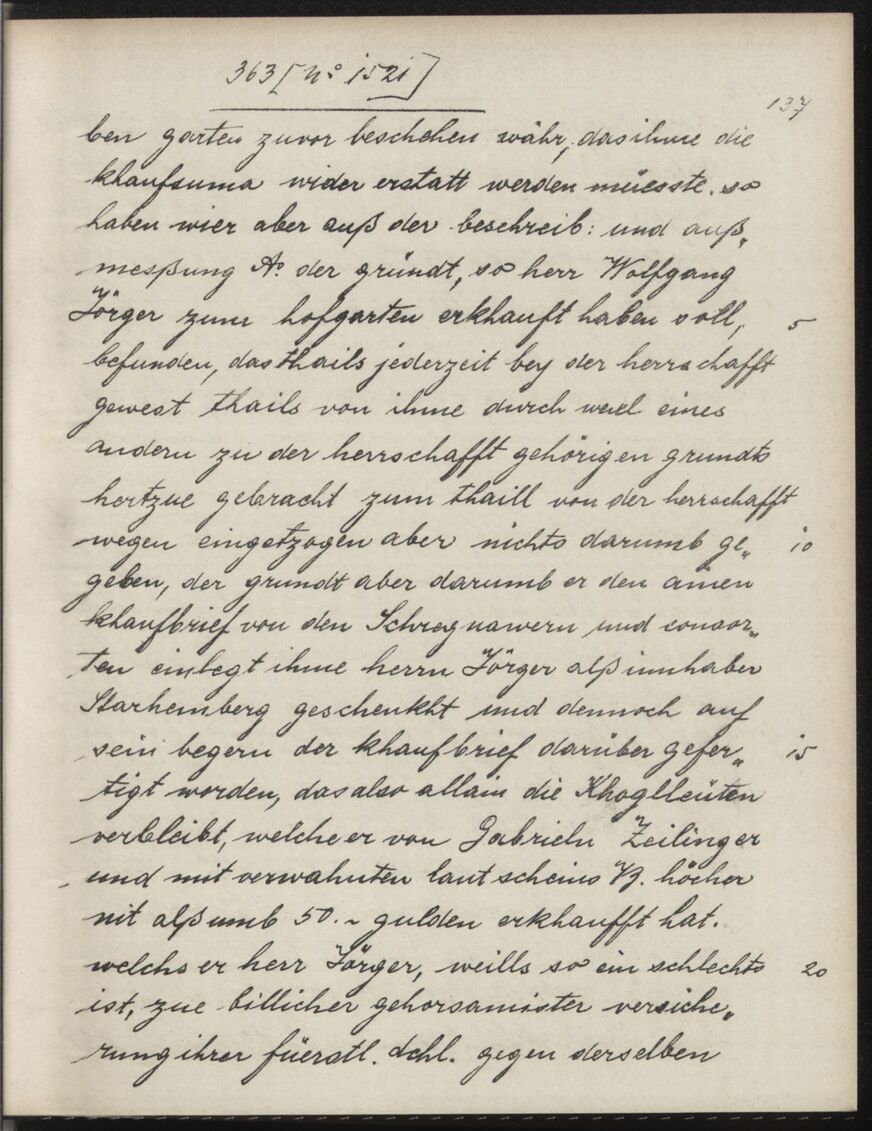 363 [No 1521]
137
ben garten zuvor beschehen währ, das ihme die
khaufsuma wider erstatt werden müesste. so
haben wier aber auß der beschreib: und auß„
messßung A. der gründt, so herr Wolfgang
Jörger zum hofgarten erkhauft haben soll, 5
befunden, das thails jederzeit bey der herrschafft
gewest thails von ihme durch weel eines
andern zu der herrschafft gehörigen grundts
hertzue gebracht zum thaill von der herrschafft
wegen eingetzogen aber nichts darumb ge„ 10
geben, der grundt aber darumb er den ainen
khaufbrief von den Schregnawern und consor„
ten einlegt ihme herrn Jörger alß innhaber
Starhemberg geschenkht und dennoch auf
sein begern der khaufbrief darüber gefer„ 15
tigt worden, das also allain die Khoglleüten
verbleibt, welche er von Gabrieln Zeilinger
und mit verwahnten laut scheins B. höcher
nit alß umb 50.~ gulden erkhaufft hat.
welchs er herr Jörger, weills so ein schlechts 20
ist, zue billicher gehorsamister versiche„
rung ihrer füerstl. dchl. gegen derselben